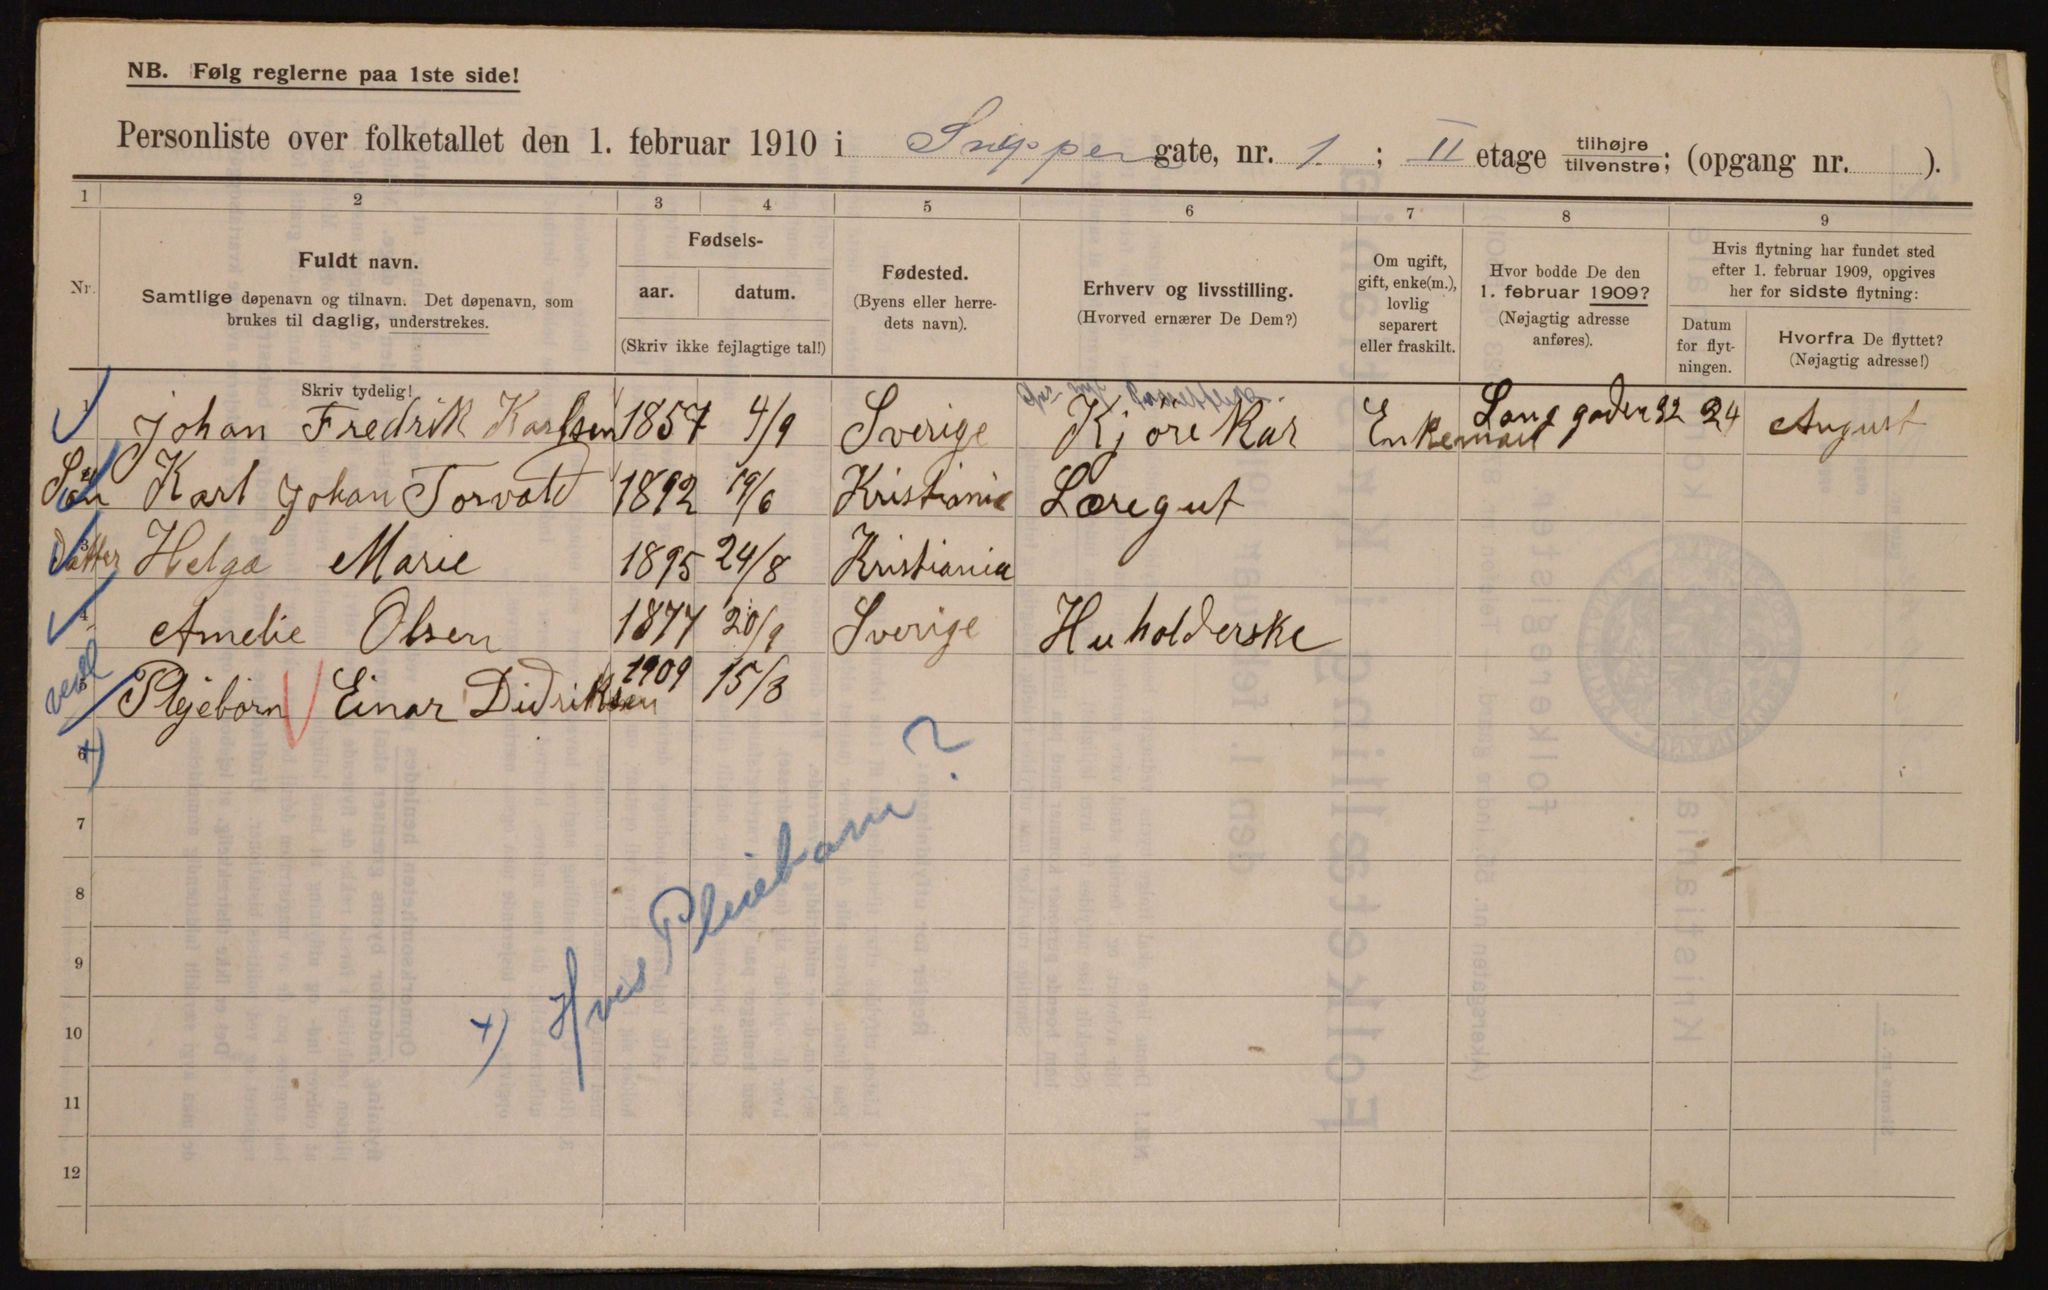 NB. Følg reglerne paa 1ste side!
Personliste over folketallet den 1. februar 1910 i Snippen gate, nr. 1. ; II etage tilhøjre/tilvenstre; (opgang nr. ).
1 2 3 4 5 6 7 8 9
Nr.
Fuldt navn.
Samtlige døpenavn og tilnavn. Det døpenavn, som
brukes til daglig, understrekes.
Skriv tydelig!
Fødsels-
aar. datum.
(Skriv ikke fejlagtige tal!)
Fødested.
(Byens eller herre-
dets navn).
Erhverv og livsstilling.
(Hvorved ernærer De Dem?)
Om ugift,
gift, enke(m.),
lovlig
separert
eller fraskilt.
Hvor bodde De den
1. februar 1909?
(Nøjagtig adresse
anføres).
Hvis flytning har fundet sted
efter 1. februar 1909, opgives
her for sidste flytning:
Datum
for flyt-
ningen.
Hvorfra De flyttet?
(Nøjagtig adresse!)
Johan Fredrik Karlsen 1857 4/9 Sverige Kjörekar Enkemand Lang gaden 32 24 August
Søn Karl Johan Torvald 1892 19/6 Kristiania Læregut
Datter Helga Marie 1895 24/8 Kristiania
4 Amelie Olsen 1877 20/9 Sverige Huholderske
5 Plejebörn Einar Didriksen 1909 15/3
6 +)
7
8
9
10
11
12
+) Hvis Pleiebarn?